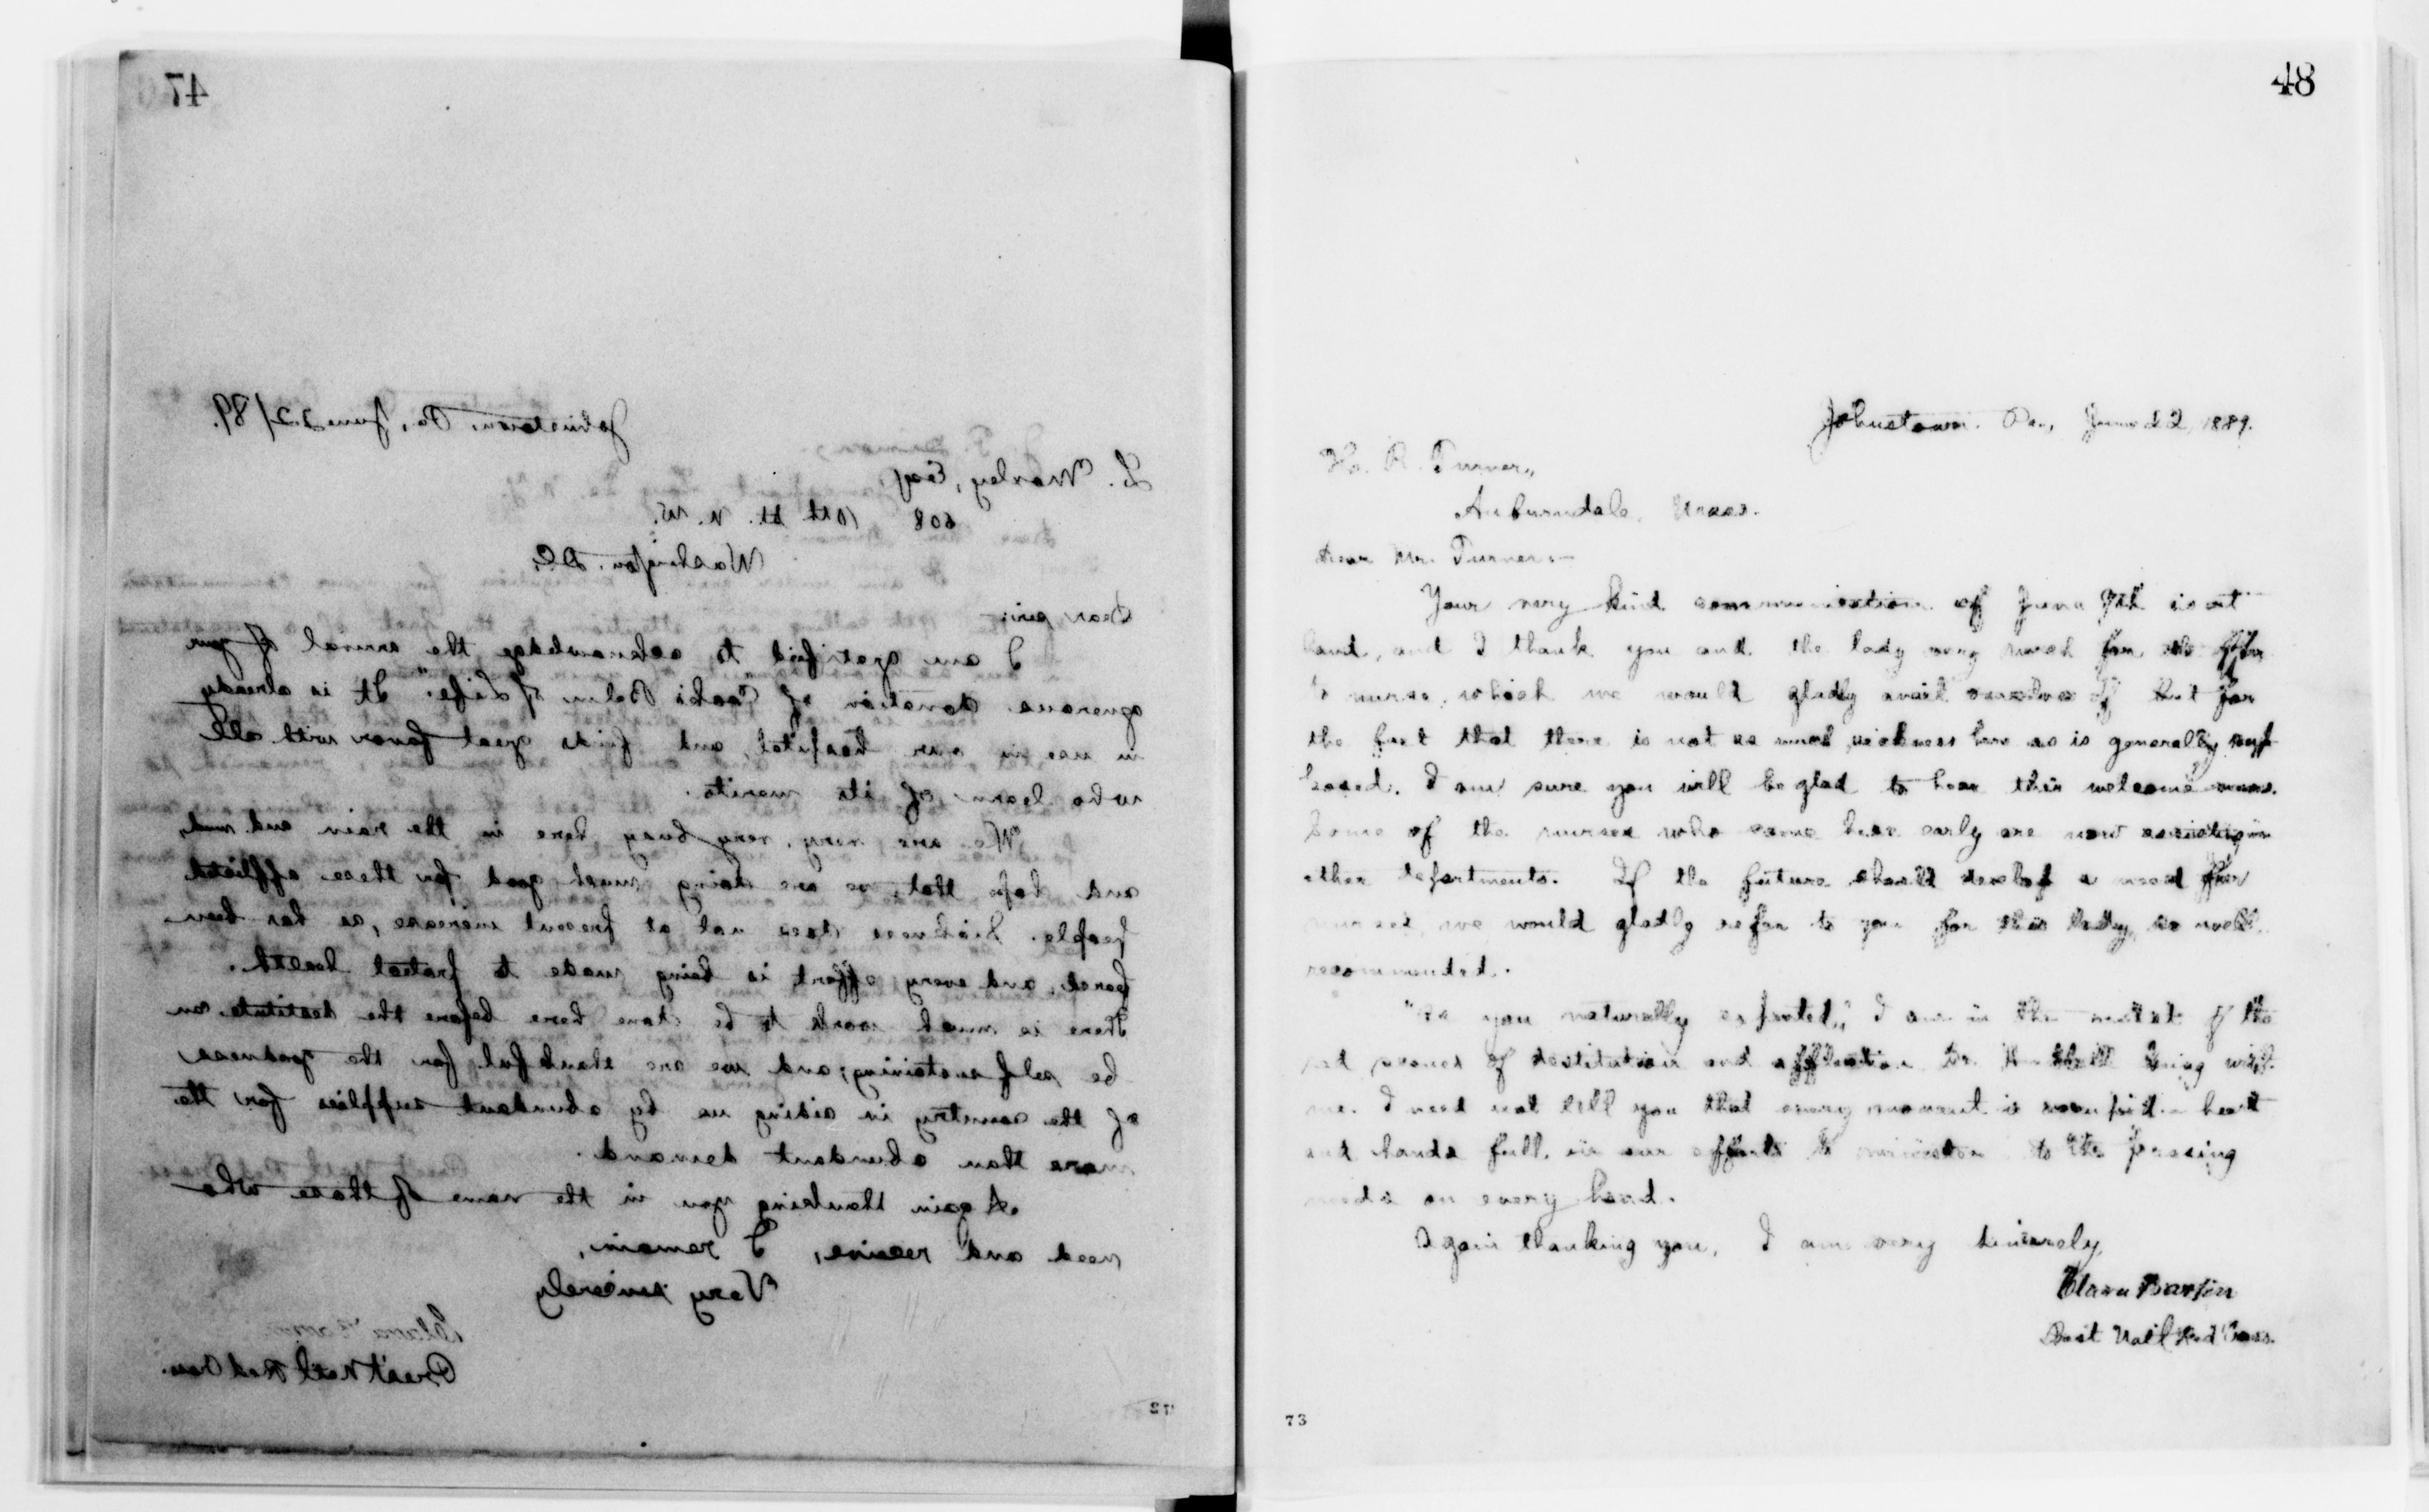 47
Johnstown, Pa., June 22/89.
L. Morley, Esq
608 10th St. N. W.
Washington, D.C.
Dear sir:
I am gratified to acknowledge the arrival of your
generous donation of Cook's Balm of Life." It is already
in use in our hospital, and finds great favor with all
who learn of its merits.
We are very, very busy here in the rain and mud,
and hope that we are doing much good for these afflicted
people. Sickness does not at present increase, as has been
feared, and every effort is being made to protect health.
There is much work to be done here before the destitute can
be self sustaining; and we are thankful for the goodness
of the country in aiding us by abundant supplies for the
more than abundant demand.
Again thanking you in the name of those who
need and receive, I remain,
Very sincerely
Clara Barton
Prest Natl Red Cross.
72
48
Johnstown. Pa., June 22, 1889.
R. Turner,
Auburndale, Mass.
Dear Mr. Turner:—
Your very kind communication of June 9th is at
hand, and I thank you and the lady very much for the offer
to nurse, which we would gladly avail ourselves of but for
the fact that there is not as much sickness here as is generally sup-
posed. I am sure you will be glad to hear this welcome news.
Some of the nurses who came here early are now assisting in
other departments. If the future should develop a need for
nurses, we would gladly refer to you for this lady, so well
recommended.
"As you naturally expected," I am in the midst of the
sad scenes of destitution and affliction Dr. Hubbell being with
me. I need not tell you that every moment is occupied — heart
and hands full, in our efforts to minister to the pressing
needs on every hand.
Again thanking you, I am very sincerely,
Clara Barton
Prest Natl Red Cross.
73